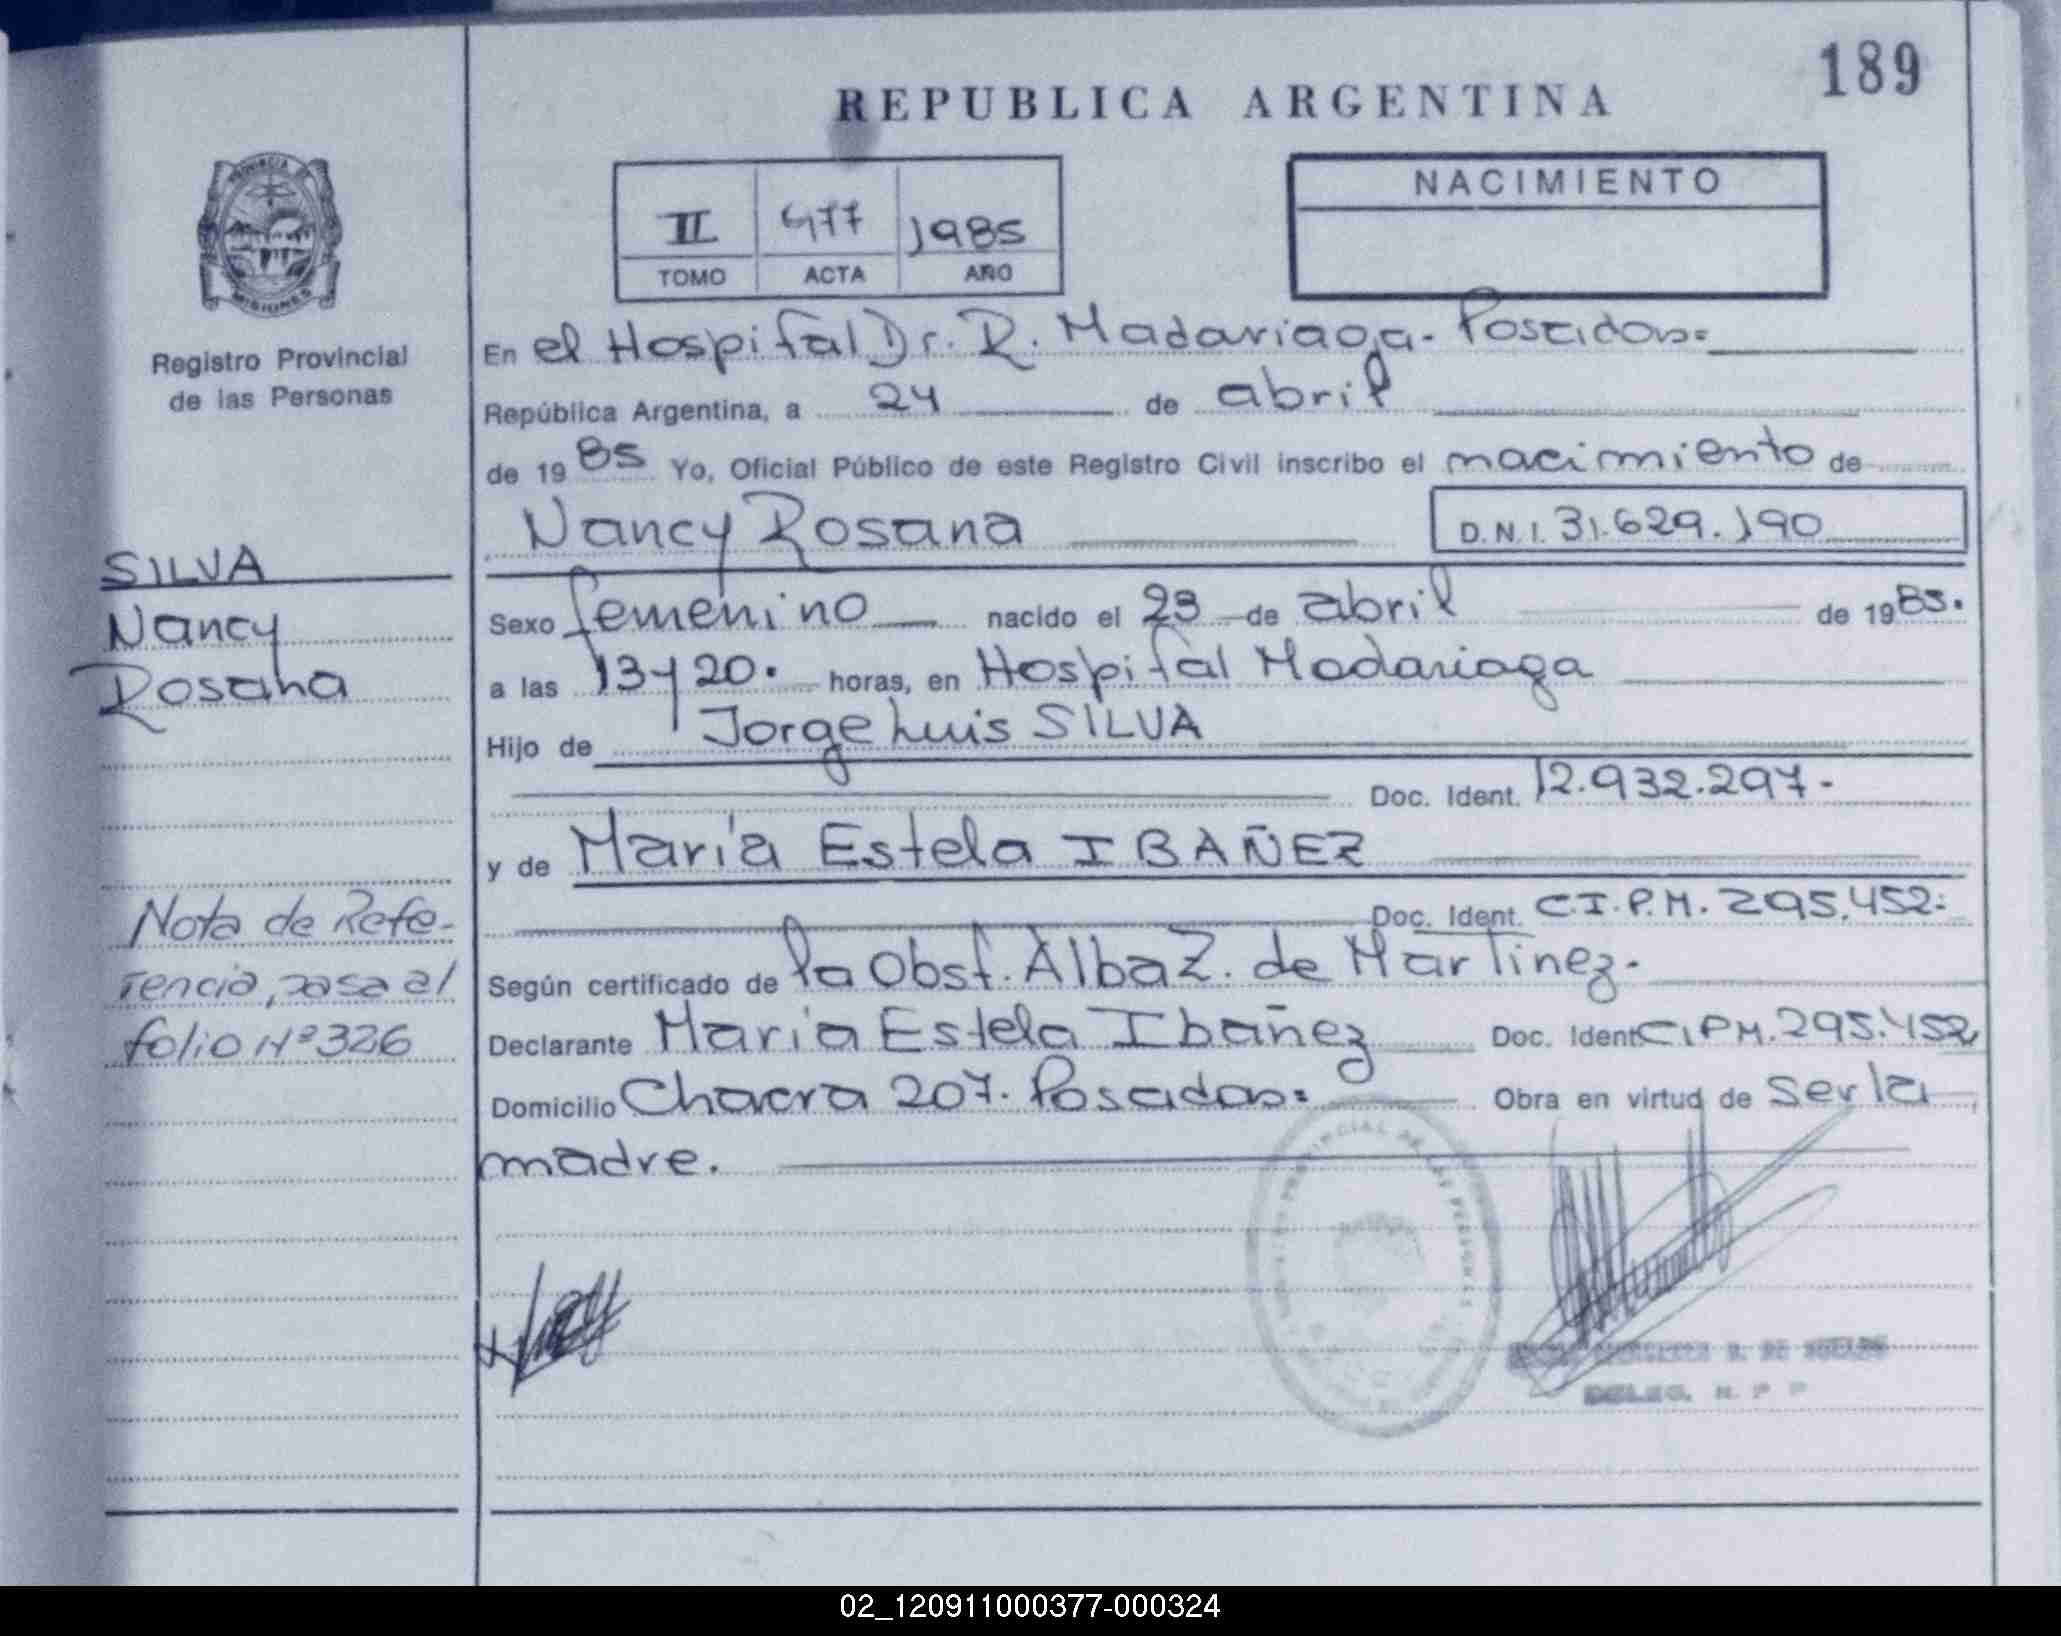 189
REPUBLICA ARGENTINA
PROVINCIA DE
MISIONES
Registro Provincial
de las Personas
II 477 1985
TOMO ACTA AÑO
NACIMIENTO
En el Hospital Dr. R. Madariaga - Posadas=
República Argentina, a 24 de abril
de 1985 Yo, Oficial Público de este Registro Civil inscribo el nacimiento de
Nancy Rosana D.N.I. 31.629.190
SILVA
Nancy
Rosana
Sexo femenino nacido el 23 de abril de 1985.
a las 13 y 20. horas, en Hospital Madariaga
Hijo de Jorge Luis SILVA
Doc. Ident. 12.932.297-
y de María Estela IBAÑEZ
Doc. Ident. C.I.P.M. 295.452=
Según certificado de la Obst. Alba Z. de Martinez.
Declarante María Estela Ibañez Doc. Ident C.I.P.M. 295.452
Domicilio Chacra 207. Posadas= Obra en virtud de ser la
madre.
Nota de Refe-
rencia, pasa al
folio Nº 326
PROVINCIAL DE LAS PERSONAS
DE
DELEG. R. P P
02_120911000377-000324